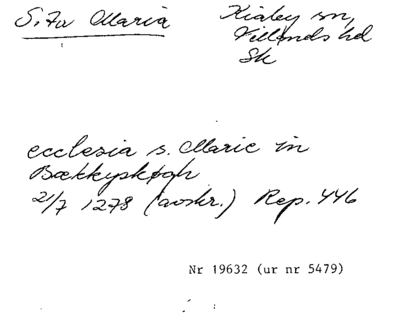 S:ta Maria
Kiaby sn,
Villands hd
Sk
ecclesia s. Marie in
Bækkyskogh
2/7 1278 (avskr.) Rep. 446
Nr 19632 (ur nr 5479)